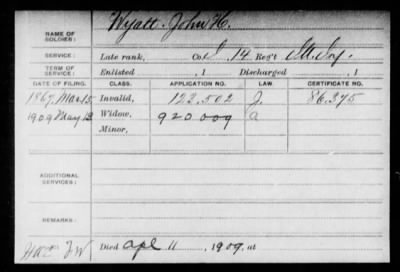 NAME OF SOLDIER: Wyatt. John H.
SERVICE: Late rank, Co. I, 14 Reg't Ill. Inf.
TERM OF SERVICE: Enlisted , 1 Discharged , 1
DATE OF FILING. CLASS. APPLICATION NO. LAW. CERTIFICATE NO.
1867 Mar. 15 Invalid, 123.502 J. 86.375
1909 May 13 Widow, 920 009 a
Minor,
ADDITIONAL SERVICES:
REMARKS:
Died Apl 11, 1909, at